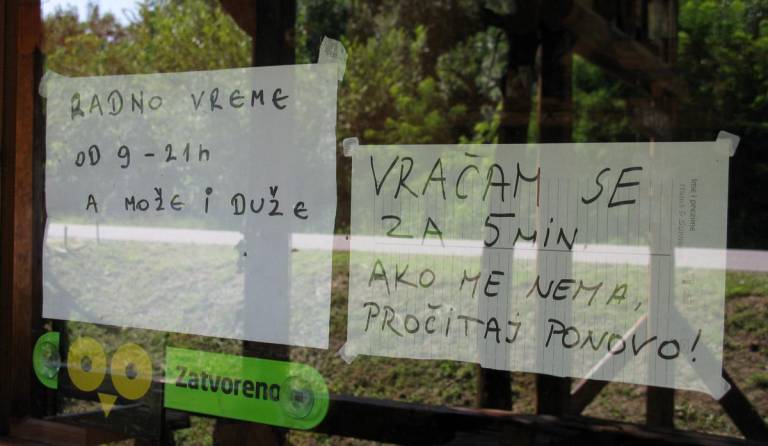 RADNO VREME
OD 9-21h
A MOŽE I DUŽE
VRAČAM SE
ZA 5 MIN
AKO ME NEMA,
PROČITAJ PONOVO!
Ime i prezime
Zatvoreno